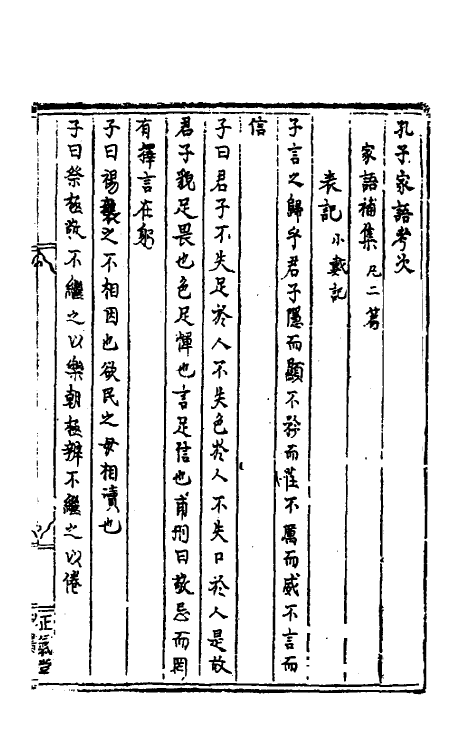 孔子家語考次
家語補集 凡二篇
表記 小戴記
子言之歸乎君子隱而顯不矜而莊不厲而威不言而
信
子曰君子不失足於人不失色於人不失口於人是故
君子貌足畏也色足憚也言足信也甫刑曰敬忌而罔
有擇言在躬
子曰裼襲之不相因也欲民之毋相瀆也
子曰祭極敬不繼之以樂朝極辨不繼之以倦
正氣堂